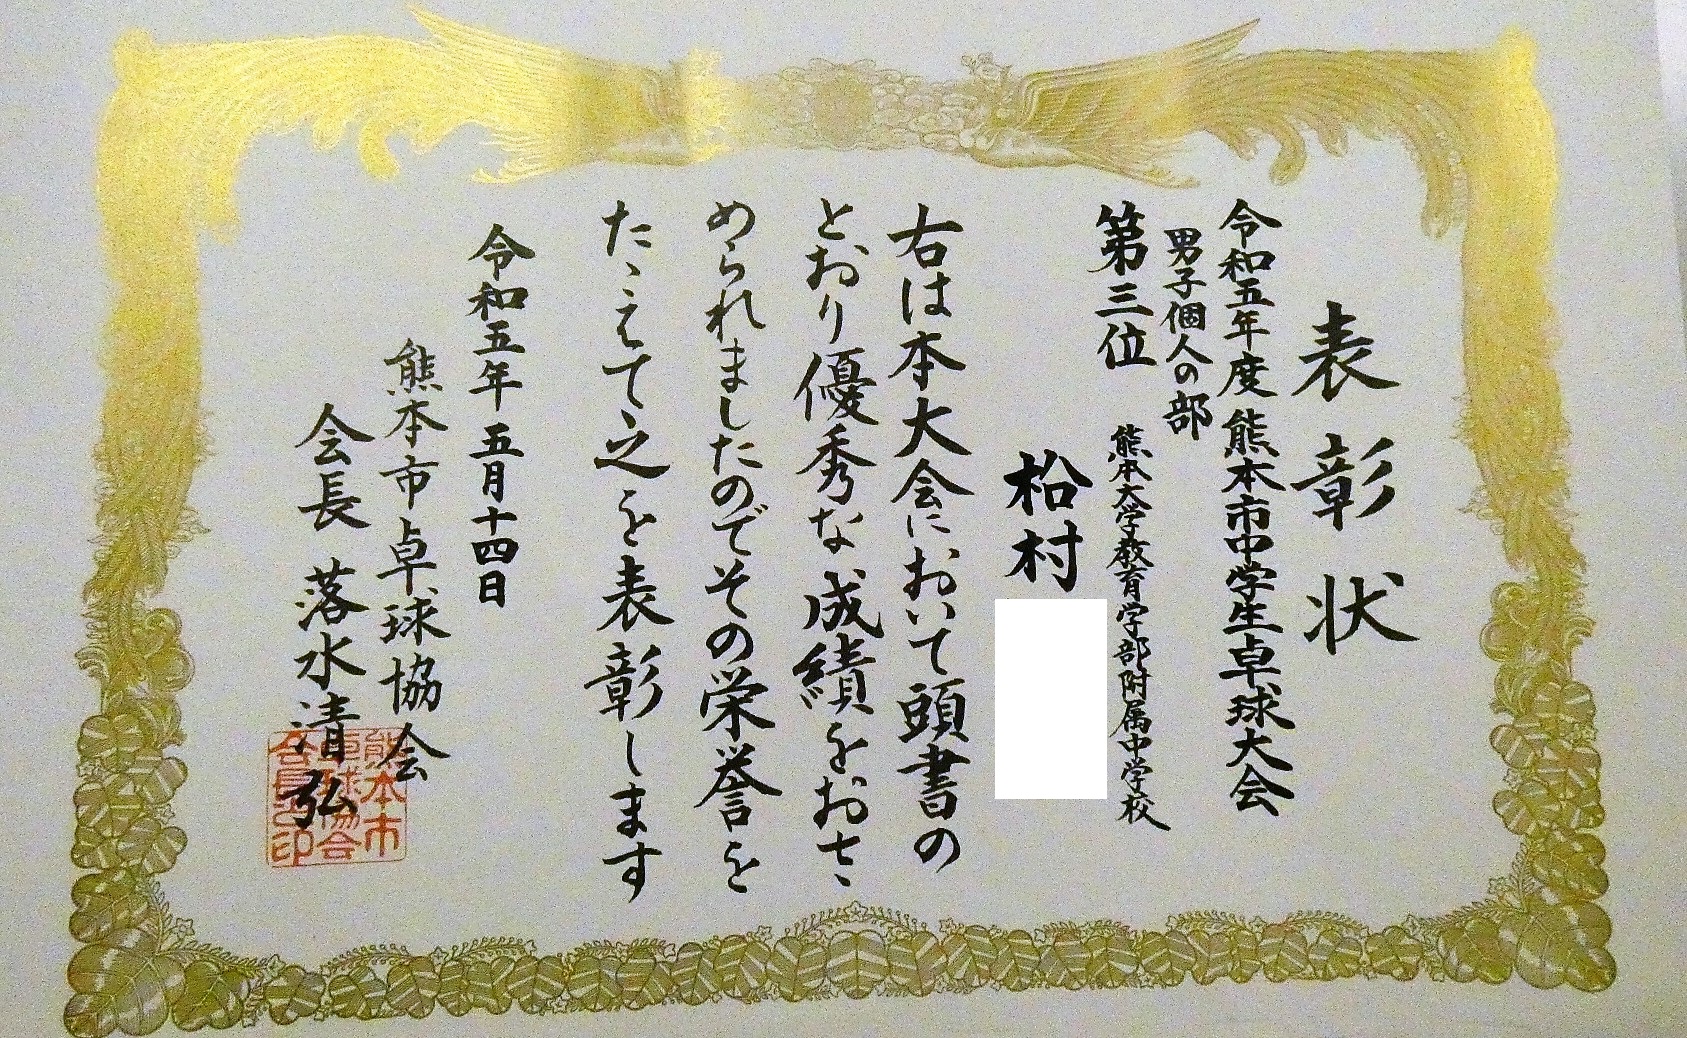 表彰状
令和五年度熊本市中学生卓球大会
男子個人の部
第三位 熊本大学教育学部附属中学校
松村
右は本大会において頭書の
とおり優秀な成績をおさ
められましたのでその栄誉を
たゝえて之を表彰します
令和五年五月十四日
熊本市卓球協会
会長 落水清弘
熊本市
卓球協会
会長之印